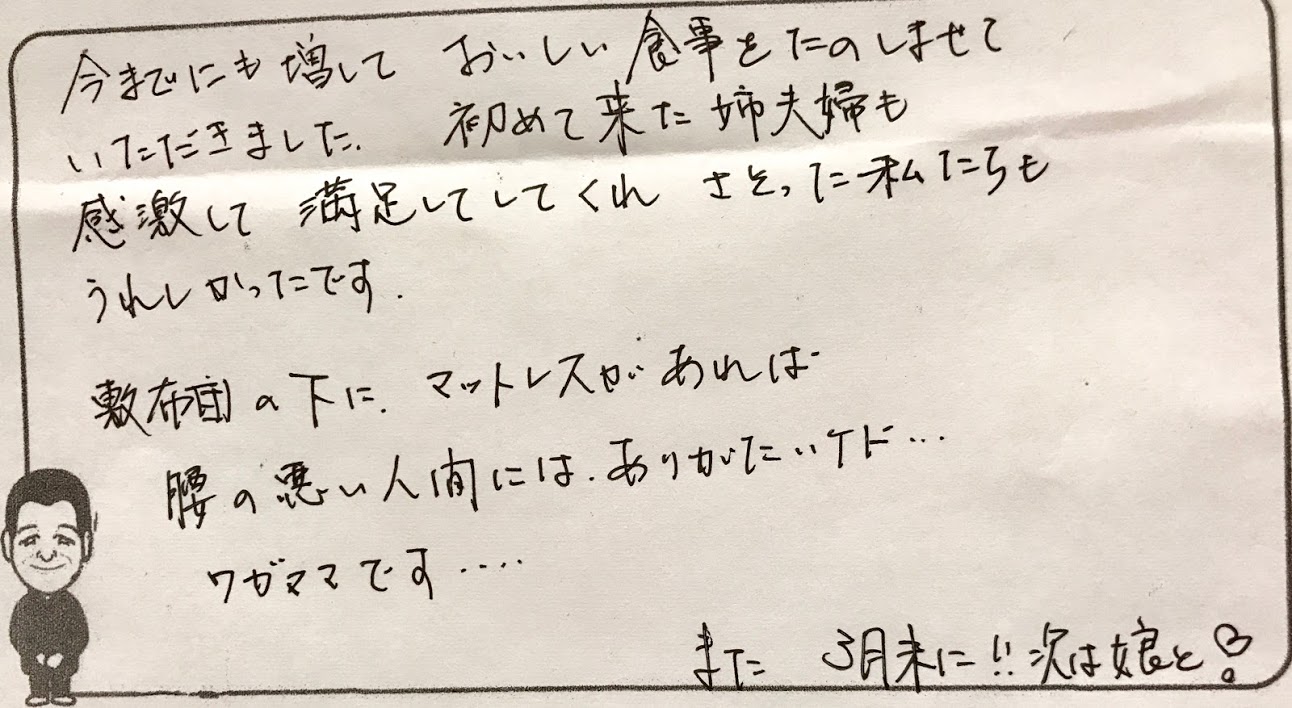 今までにも増して おいしい食事をたのしませて
いただきました. 初めて来た姉夫婦も
感激して 満足してしてくれ さそった私たちも
うれしかったです.
敷布団の下に. マットレスがあれば
腰の悪い人間には. ありがたいケド…
ワガママです....
また 3月末に!! 次は娘と♡